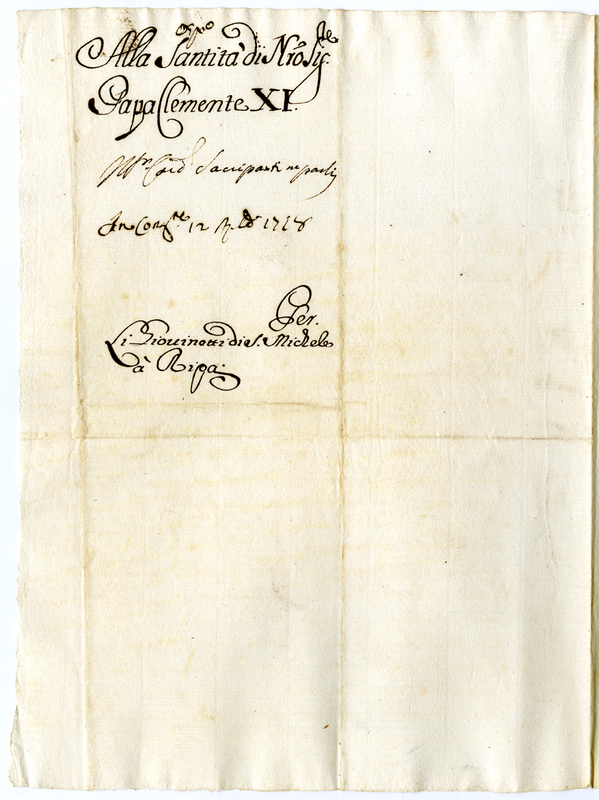 Alla Santità di Nrõ Sig.re
Papa Clemente XI.
Card. Sacripanti ne parli
12 1718
Per.
Li Giovinotti di S. Michele
à Ripa.